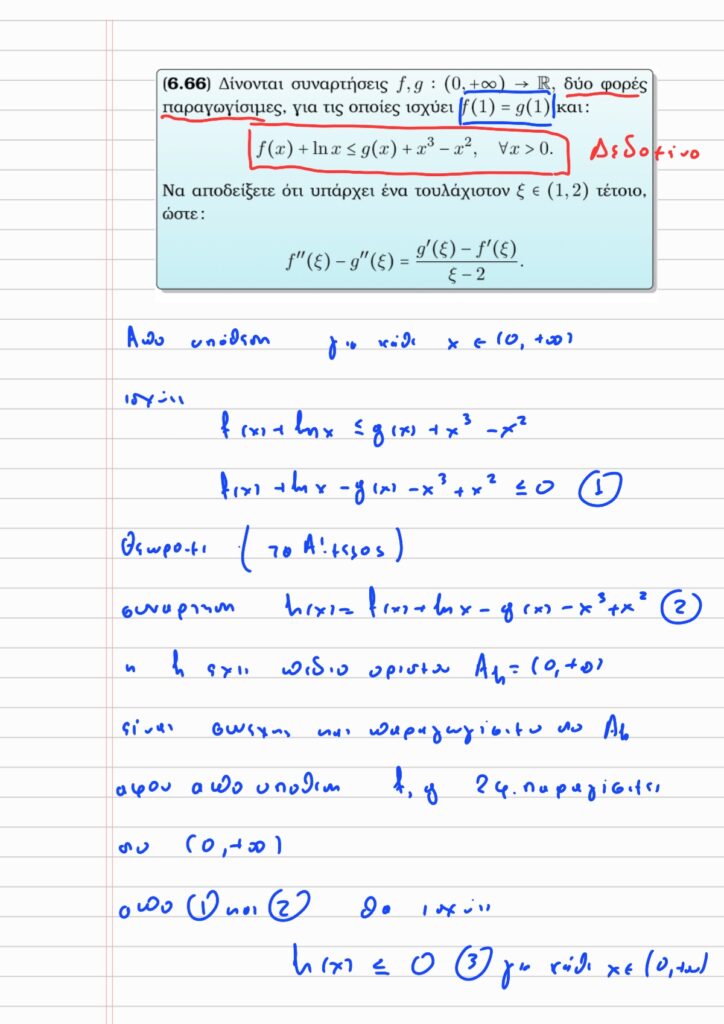 (6.66) Δίνονται συναρτήσεις f, g : (0, +∞) → ℝ, δύο φορές
παραγωγίσιμες, για τις οποίες ισχύει f(1) = g(1) και:
f(x) + ln x ≤ g(x) + x³ − x², ∀x > 0.
Δεδομένο
Να αποδείξετε ότι υπάρχει ένα τουλάχιστον ξ ∈ (1, 2) τέτοιο,
ώστε:
f''(ξ) − g''(ξ) = (g'(ξ) − f'(ξ)) / (ξ − 2).
Απο υπόθεση για κάθε x ∈ (0, +∞)
ισχύει
f(x) + ln x ≤ g(x) + x³ − x²
f(x) + ln x − g(x) − x³ + x² ≤ 0 (1)
Θεωρουμε (το Α! μελος)
συναρτηση h(x) = f(x) + ln x − g(x) − x³ + x² (2)
η h εχει πεδιο ορισμου A_h = (0, +∞)
είναι συνεχης και παραγωγίσιμη στο A_h
αφου απο υποθεση f, g 2φ. παραγίσιμες
στο (0, +∞)
απο (1) και (2) θα ισχύει
h(x) ≤ 0 (3) για κάθε x ∈ (0, +∞)